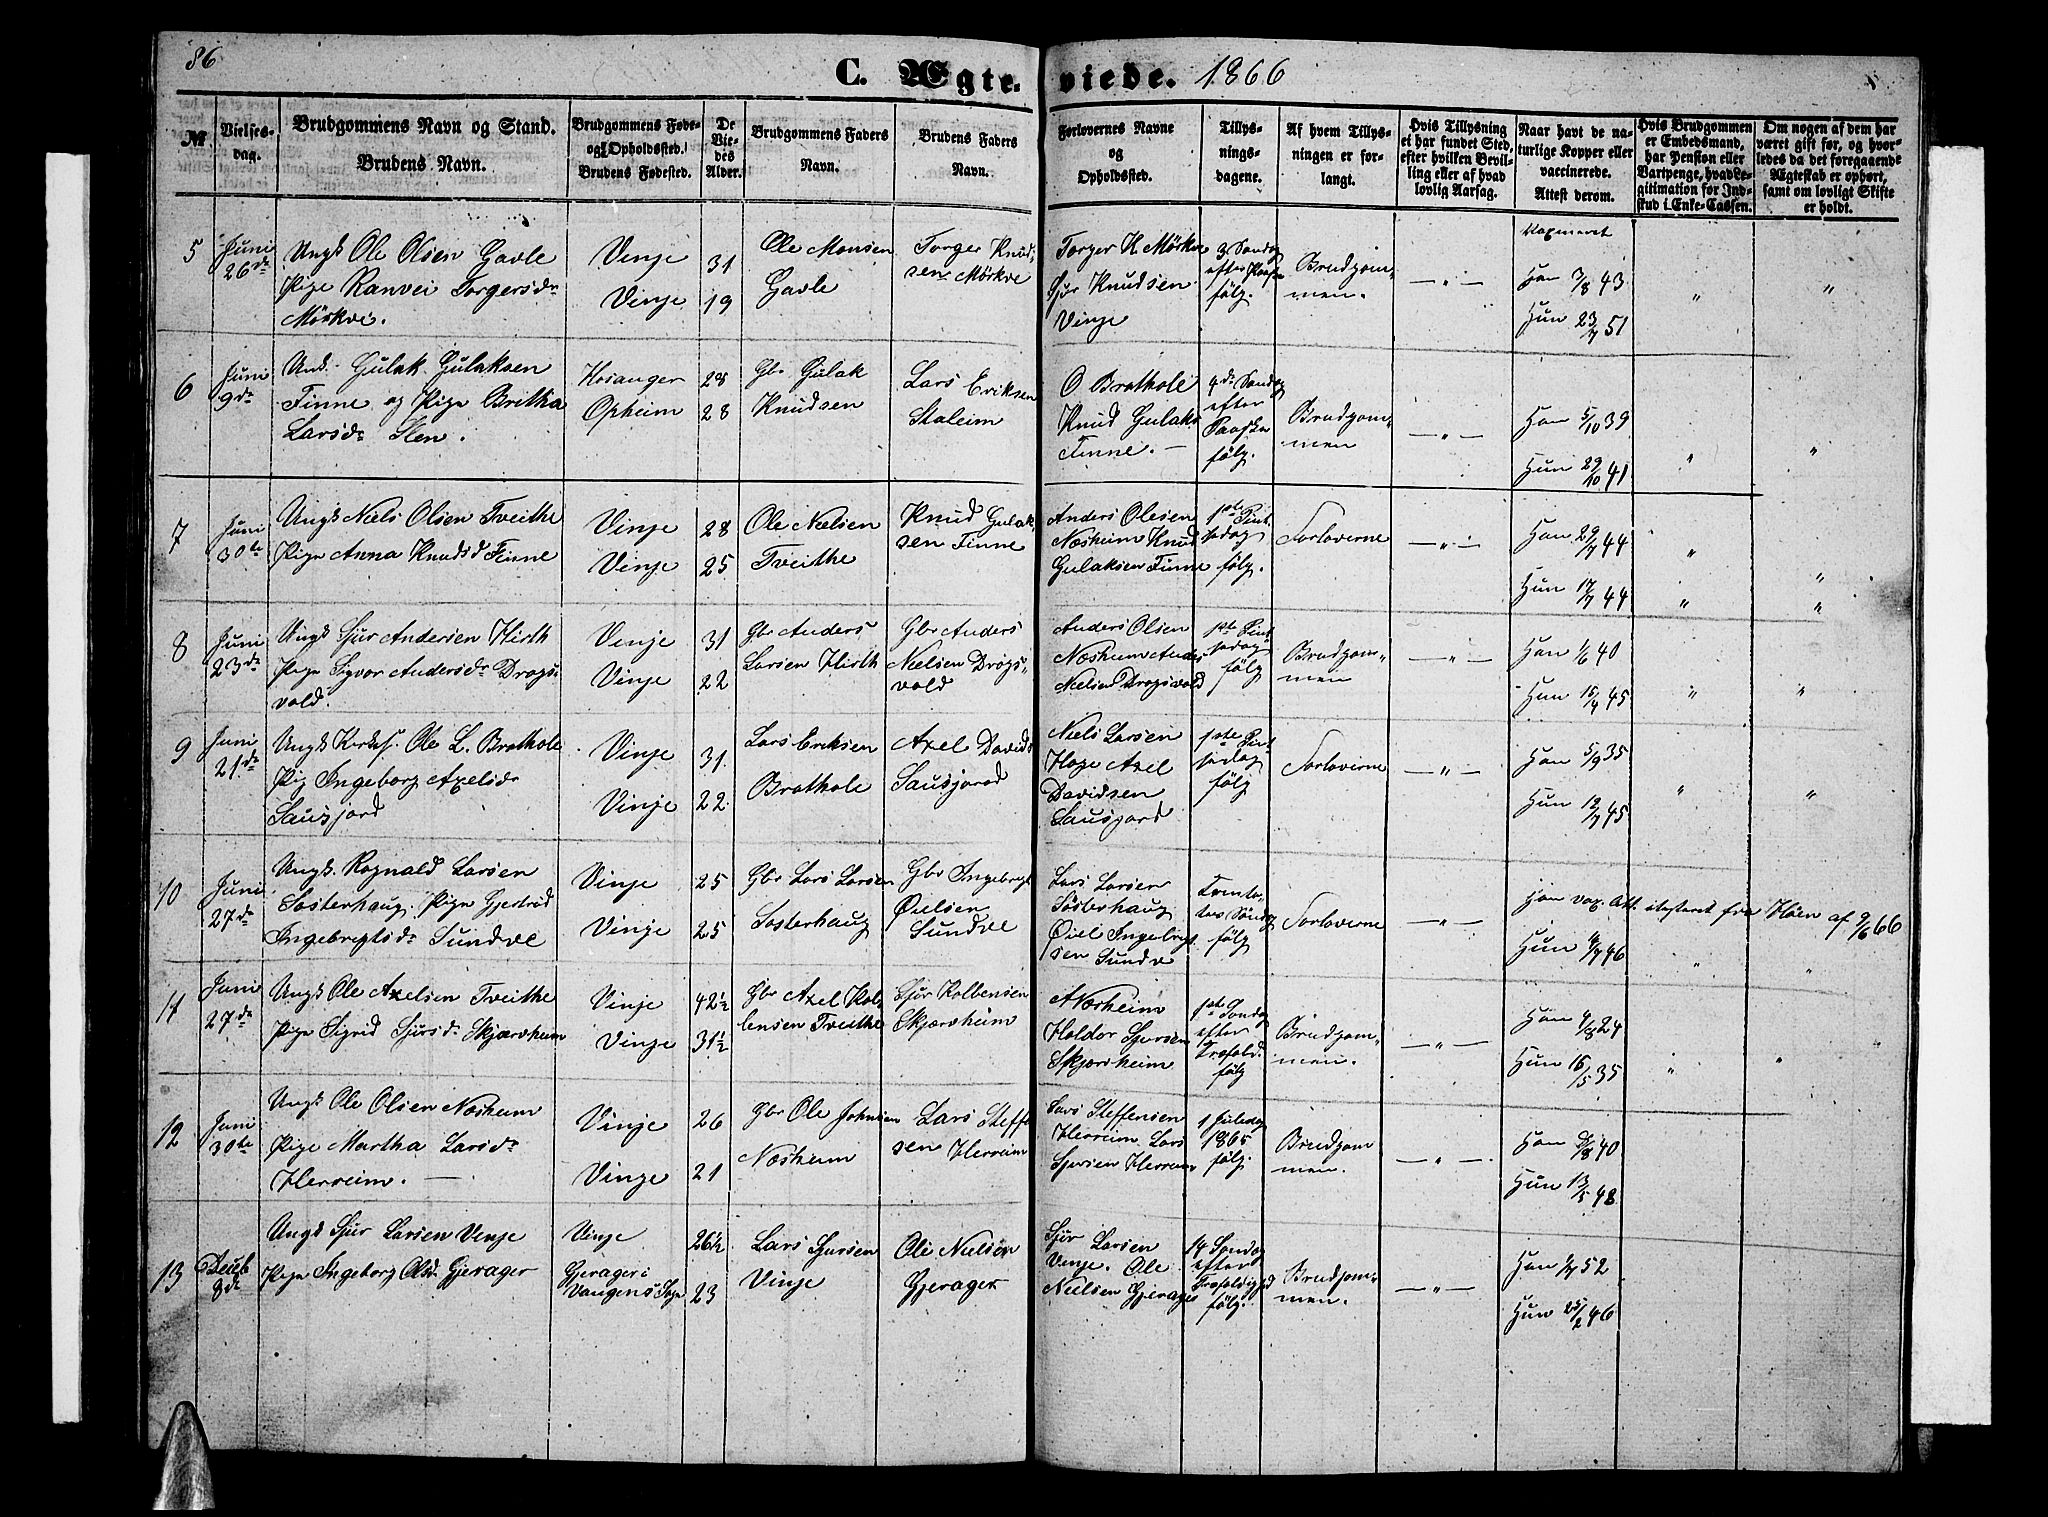 86
C. Ægte- viede. 1866
№
Vielses-
dag.
Brudgommens Navn og Stand.
Brudens Navn.
Brudgommens Føde-
og Opholdssted.
Brudens Fødested.
De
Vie-
des
Alder.
Brudgommens Faders
Navn.
Brudens Faders
Navn.
Forlovernes Navne
og
Opholdssted.
Tillys-
nings-
dagene.
Af hvem Tillys-
ningen er for-
langt.
Hvis Tillysning
ei har fundet Sted,
efter hvilken Bevil-
ling eller af hvad
lovlig Aarsag.
Naar havt de na-
turlige Kopper eller
vaccinerede.
Attest derom.
Hvis Brudgommen
er Embedsmand,
har Pension eller
Vartpenge, hvad Le-
gitimation for Ind-
skud i Enke-Cassen.
Om nogen af dem har
været gift før, og hvor-
ledes da det foregaaende
Ægteskab er ophørt,
samt om lovligt Skifte
er holdt.
5
Juni
26de
Ungk Ole Olsen Gavle
Pige Ranvei Torgersdr
Mörkve.
Vinje
Vinje
31
19
Ole Monsen
Gavle
Torger Knud-
sen Mörkve
Torger K. Mörkve
Sjur Knudsen
Vinje
3 Søndag
efter Paaske
følg.
Brudgom-
men.
— " —
Vaxineret
Han 3/8 43
Hun 23/7 51
"
"
6
Juni
9de
Unk. Gulak Gulaksen
Finne og Pige Britha
Larsdr Sten.
Hosanger
Opheim
28
28
Gbr Gulak
Knudsen
Lars Eriksen
Staleim
O Brathole
Knud Gulaks
Finne. —
4de Søndag
efter
Paaske
følg.
Brudgom-
men
— " —
Han 5/10 39
Hun 29/10 41
"
"
7
Juni
30te
Ungk Niels Olsen Tveithe
Pige Anna Knudsd Finne
Vinje
Vinje
28
25
Ole Nielsen
Tveithe
Knud Gulak-
sen Finne
Anders Olesen
Næsheim Knud
Gulaksen Finne
1ste Pint-
sedag
følg.
Forloverne
— " —
Han 29/7 44
Hun 17/7 44
"
"
"
"
8
Juni
23de
Ungk Sjur Andersen Hirth
Pige Sigvor Andersdr Drags-
vold.
Vinje
Vinje
31
22
Gbr Anders
Larsen Hirth
Gbr Anders
Nielsen Drags-
vold
Anders Olsen
Næsheim Anders
Nielsen Dragsvold
1ste Pint-
sedag
følg
Brudgom-
men
— " —
Han 1/6 40
Hun 15/4 45
"
"
9
Juni
21de
Ungk Kirkes. Ole L. Brathole
Pig Ingeborg Axelsdr
Sausjord
Vinje
Vinje
31.
22.
Lars Eriksen
Brathole
Axel Davids
Sausjord
Niels Larsen
Hage Axel
Davidsen
Sausjord
1ste Pint-
sedag
følg
Forloverne
— " —
Han 5/9 35
Hun 12/7 45
"
"
10
Juni
27de
Ungk. Ragnald Larsen
Sosterhaug. Pige Gjertrud
Ingebrigtsdr Sundve
Vinje
Vinje
25
25
Gbr Lars Larsen
Sosterhaug
Gbr Ingebrigt
Øielsen
Sundve
Lars Larsen
Sösterhaug
Øiel Ingebrigt-
sen Sundve
Søndag
følg
Forloverne
— " —
Han vax. Att. fra af 9/6 66
Hun 46
"
"
11
Juni
27de
Ungk Ole Axelsen Tveithe
Pige Sigrid Sjursdr Skjærsheim
Vinje
Vinje
42½
31½
Gbr Axel Kol-
bensen Tveithe
Sjur Kolbensen
Skjærsheim
A Næsheim
Haldor Sjursen
Skjærsheim
1ste Søndag
efter
Trefold.
følg
Brudgom-
men.
— " —
Han 4/8 24
Hun 16/5 35
"
"
12
Juni
30te
Ungk Ole Olsen Næsheim
Pige Martha Larsdr
Herreim. —
Vinje
Vinje
26
21
Gbr Ole Johnsen
Næsheim
Lars Steff-
sen Herreim
Lars Steffensen
Herreim Lars
Sjursen Herreim
1 Juledag
1865
følg.
Brudgom
men.
— " —
Han 40
Hun 13/5 48
13
Decbr
8de
Ungk Sjur Larsen Vinje
Pige Ingeborg Olsdr Gjerager
Vinje
Gjerager i
Vangens Sogn
26½
23
Lars Sjursen
Vinje
Ole Nielsen
Gjerager
Sjur Larsen
Vinje. Ole
Nielsen Gjerager
14 Søndag
efter
Trefoldighed
følg.
Brudgom-
men.
— " —
Han 52
Hun 25/2 46